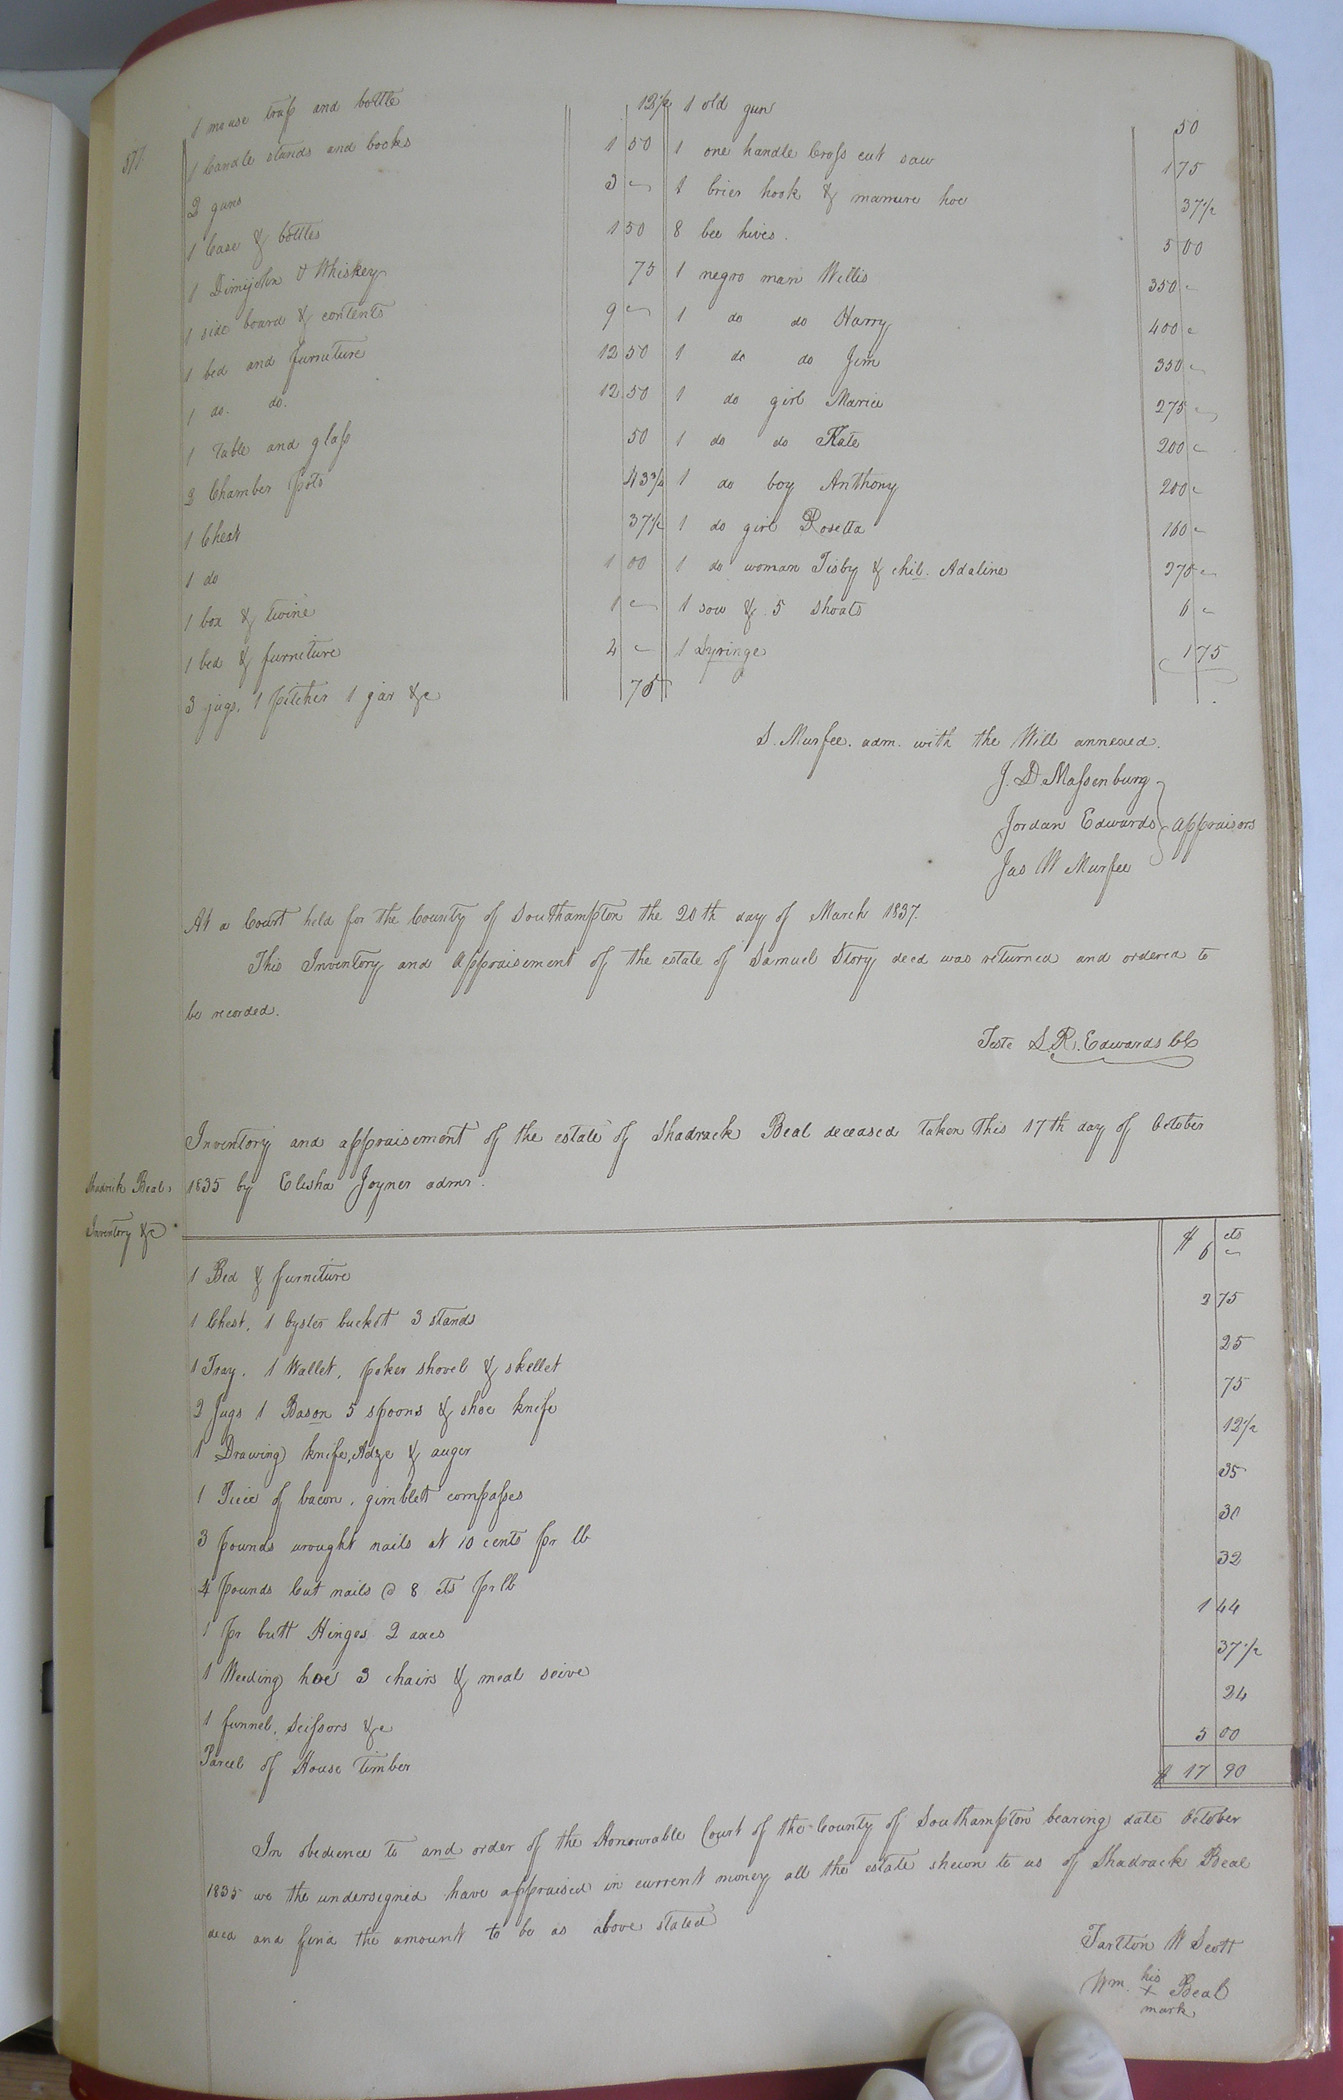 577
1 mouse trap and bottle 12 1/2
1 Candle stands and books 1 50
2 guns 3 "
1 Case & bottles 1 50
1 Dimijohn & Whiskey 75
1 side board & contents 9 "
1 bed and furniture 12 50
1 do. do. 12 50
1 Table and glass 50
2 Chamber pots 43 3/4
1 Chest 37 1/2
1 do 1 00
1 box & twine 1 "
1 bed & furniture 4 "
3 jugs, 1 pitcher 1 jar &c 75
1 old gun 50
1 one handle Cross cut saw 1 75
1 brier hook & manure hoe 37 1/2
8 bee hives. 5 00
1 negro man Willis 350 "
1 do do Harry 400 "
1 do do Jim 350 "
1 do girl Maria 275 "
1 do do Kate 200 "
1 do boy Anthony 200 "
1 do girl Rosetta 160 "
1 do woman Tisby & chil. Adaline 275 "
1 sow & 5 shoats 6 "
1 Syringe 1 75
S. Murfee. adm. with the Will annexed.
J. D Massenburg
Jordan Edwards } appraisors
Jas W Murfee
At a Court held for the County of Southampton the 20th day of March 1837.
This Inventory and appraisement of the estate of Samuel Story decd was returned and ordered to
be recorded.
Teste S. R. Edwards CC
Inventory and appraisement of the estate of Shadrack Beal deceased taken this 17th day of October
Shadrick Beal 1835 by Elisha Joyner admr.
Inventory &c
$ cts
1 Bed & furniture 6 "
1 Chest, 1 Oyster bucket 3 stands 2 75
1 Tray, 1 Wallet, poker shovel & skellet 25
2 Jugs 1 Bason 5 spoons & shoe knife 75
1 Drawing knife, Adze & auger 12 1/2
1 Piece of bacon, gimblet compasses 35
3 pounds wrought nails at 10 cents pr lb 30
4 pounds Cut nails @ 8 cts pr lb 32
1 pr butt Hinges 2 axes 1 44
1 Weeding hoe 3 chairs & meal seive 37 1/2
1 funnel, scissors &c 24
Parcel of House timber 5 00
$ 17 90
In obedience to and order of the Honourable Court of the County of Southampton bearing date October
1835 we the undersigned have appraised in current money all the estate shewn to us of Shadrack Beal
decd and find the amount to be as above stated
Tartton W Scott
Wm. his
x Beal
mark